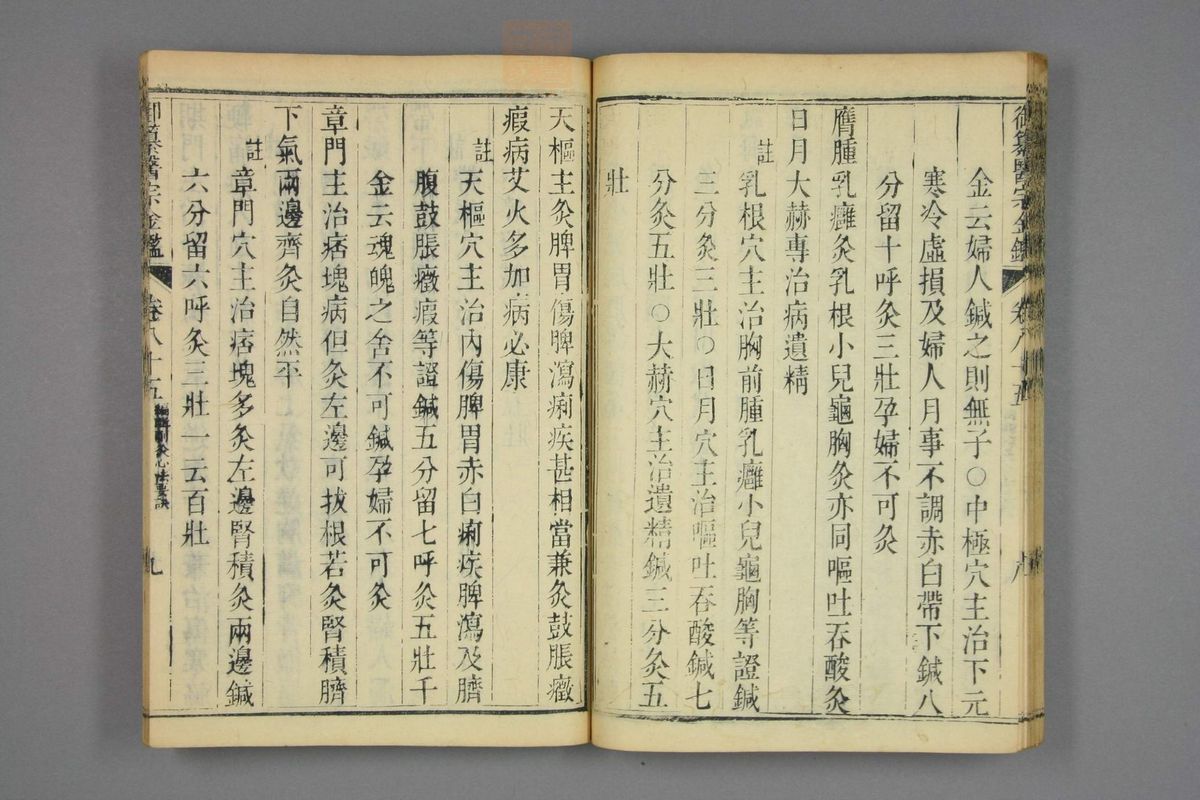 御纂醫宗金鑑
卷八十五
八
金云婦人鍼之則無子○中極穴主治下元
寒冷虛損及婦人月事不調赤白帶下鍼八
分留十呼灸三壯孕婦不可灸
膺腫乳癰灸乳根小兒龜胸灸亦同嘔吐吞酸灸
日月大赫專治病遺精
註
乳根穴主治胸前腫乳癰小兒龜胸等證鍼
三分灸三壯○日月穴主治嘔吐吞酸鍼七
分灸五壯○大赫穴主治遺精鍼三分灸五
壯
天樞主灸脾胃傷脾瀉痢疾甚相當兼灸鼓脹癥
瘕病艾火多加病必康
註
天樞穴主治內傷脾胃赤白痢疾脾瀉及臍
腹鼓脹癥瘕等證鍼五分留七呼灸五壯千
金云魂魄之舍不可鍼孕婦不可灸
章門主治痞塊病但灸左邊可拔根若灸腎積臍
下氣兩邊齊灸自然平
註
章門穴主治痞塊多灸左邊腎積灸兩邊鍼
六分留六呼灸三壯一云百壯
御纂醫宗金鑑
卷八十五
編輯刺灸心法要訣
九